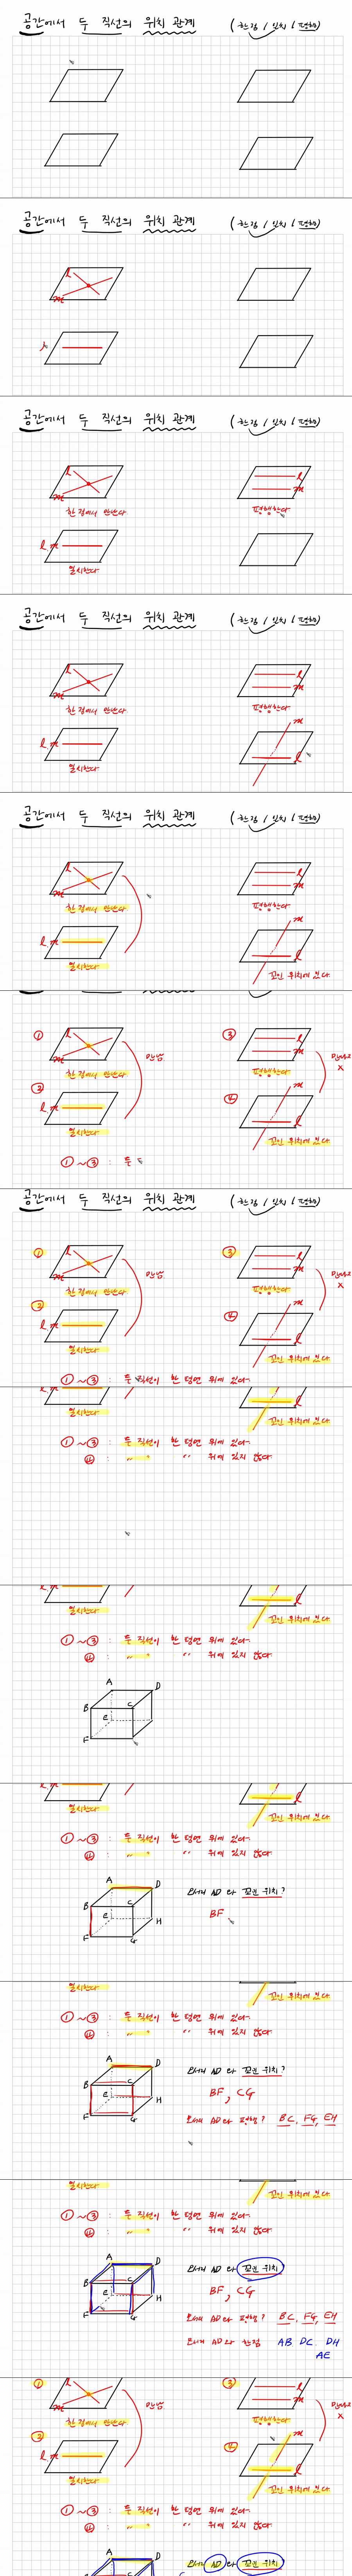 공간에서 두 직선의 위치 관계 (한점 / 일치 / 평행)
공간에서 두 직선의 위치 관계 (한점 / 일치 / 평행)
l
m
공간에서 두 직선의 위치 관계 (한점 / 일치 / 평행)
l l
m m
한 점에서 만난다 평행한다
l m
일치한다
공간에서 두 직선의 위치 관계 (한점 / 일치 / 평행)
l l
m m
한 점에서 만난다 평행한다
l m m
일치한다 l
공간에서 두 직선의 위치 관계 (한점 / 일치 / 평행)
l l
m m
한 점에서 만난다 평행한다
l m m
일치한다 l
꼬인 위치에 있다.
① l ③ l
m m
한 점에서 만난다 만남 평행한다
② l m ④ m l ×
일치한다 꼬인 위치에 있다.
① ~ ③ : 두
공간에서 두 직선의 위치 관계 (한점 / 일치 / 평행)
① l ③ l
m m
한 점에서 만난다 만남 평행한다
② l m ④ m l ×
일치한다 꼬인 위치에 있다.
① ~ ③ : 두 직선이 한 평면 위에 있다.
일치한다 꼬인 위치에 있다.
① ~ ③ : 두 직선이 한 평면 위에 있다.
④ : 〃 〃 〃 위에 있지 않다.
일치한다 꼬인 위치에 있다.
① ~ ③ : 두 직선이 한 평면 위에 있다.
④ : 〃 〃 〃 위에 있지 않다.
A D
B C
E
F
일치한다 꼬인 위치에 있다.
① ~ ③ : 두 직선이 한 평면 위에 있다.
④ : 〃 〃 〃 위에 있지 않다.
A D 모서리 AD 와 꼬인 위치?
B C
E H BF
F G
일치한다 꼬인 위치에 있다.
① ~ ③ : 두 직선이 한 평면 위에 있다.
④ : 〃 〃 〃 위에 있지 않다.
A D 모서리 AD 와 꼬인 위치?
B C BF, CG
E H
F G 모서리 AD 와 평행? BC, FG, EH
일치한다 꼬인 위치에 있다.
① ~ ③ : 두 직선이 한 평면 위에 있다.
④ : 〃 〃 〃 위에 있지 않다.
A D 모서리 AD 와 꼬인 위치?
B C BF, CG
E H
F G 모서리 AD 와 평행? BC, FG, EH
모서리 AD 와 한점 AB DC DH
AE
① l ③ l
m m
한 점에서 만난다 만남 평행한다
② l m ④ m l ×
일치한다 꼬인 위치에 있다.
① ~ ③ : 두 직선이 한 평면 위에 있다.
④ : 〃 〃 〃 위에 있지 않다.
A D 모서리 AD 와 꼬인 위치?